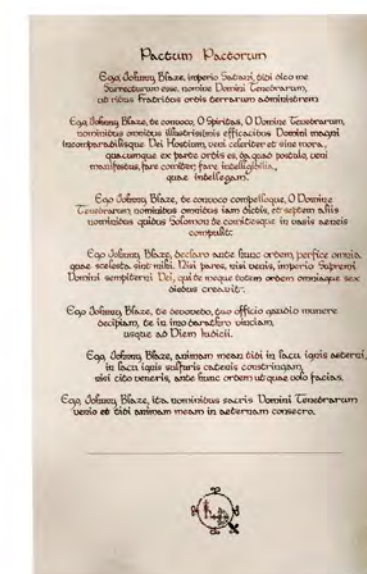 Pactum Pactorum
Ego, Johnny Blaze, imperio Satani, tibi dico me
Surrecturum esse, nomine Domini Tenebrarum,
ut ritus Fratribus orbis terrarum administrem
Ego, Johnny Blaze, te convoco, O Spiritus, O Domine Tenebrarum,
nominibus omnibus illustrissimis efficacibus Domini magni
incomparabilisque Dei Hostium, veni celeriter et sine mora,
quacumque ex parte orbis es, da quod postulo, veni
manifestus, fare comiter, fare intelligibilia,
quae intellegam.
Ego Johnny Blaze, te convoco compelloque, O Domine
Tenebrarum nominibus omnibus iam dictis, et septem aliis
nominibus quibus Solomon te comitesque in vasis aeneis
compulit:
Ego Johnny Blaze, declaro ante hunc orbem, perfice omnia
quae scelesta sint mihi. Nisi pares, nisi venis, imperio Supremi
Domini sempiterni Dei, qui te meque totem orbem omniaque sex
diebus creavit:
Ego Johnny Blaze, te devoveto, tuo officio gaudio munere
decipiam, te in imo barathro vinciam,
usque ad Diem Iudicii.
Ego, Johnny Blaze, animam meam tibi in lacu ignis aeterni,
in lacu ignis sulfuris catenis constringam,
nisi cito veneris, ante hunc orbem ut quae volo facias.
Ego Johnny Blaze, ita nominibus sacris Domini Tenebrarum
venio et tibi animam meam in aeternam consecro.